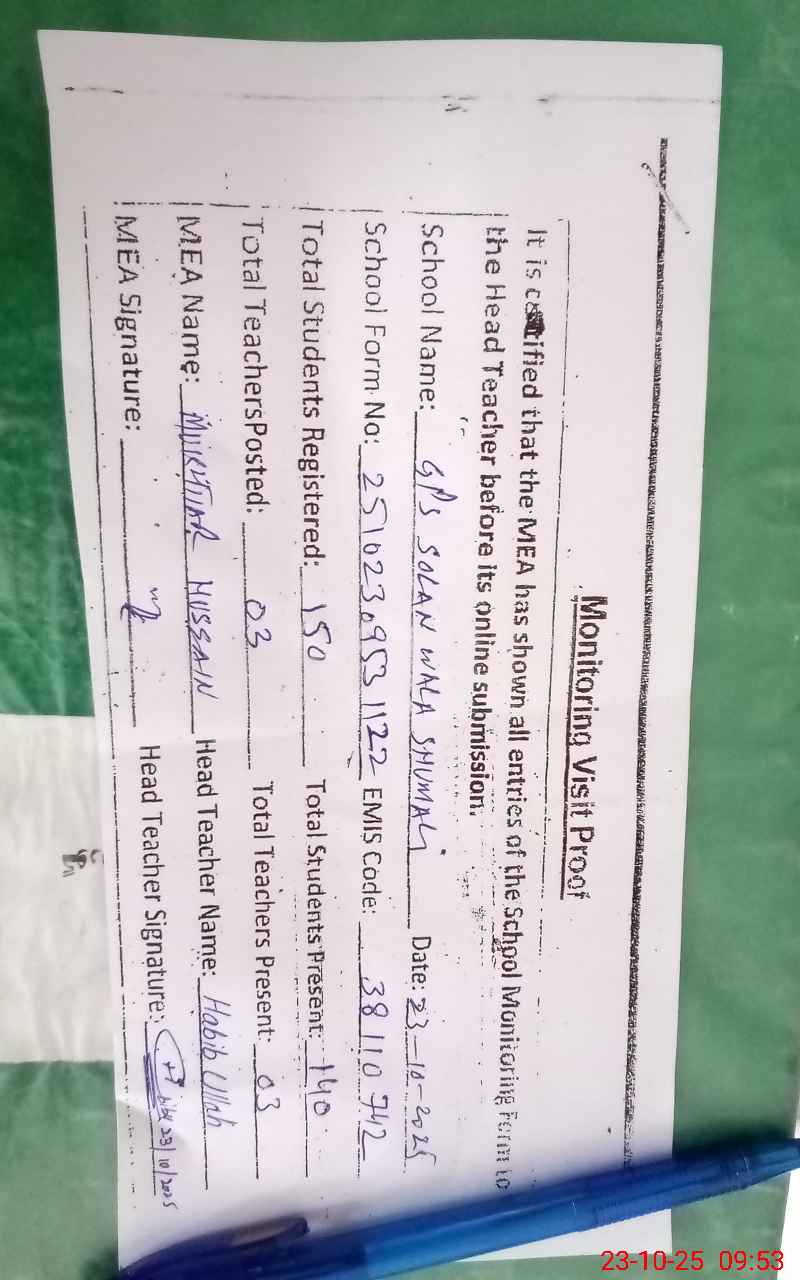 Monitoring Visit Proof
It is certified that the MEA has shown all entries of the School Monitoring Form to
the Head Teacher before its online submission.
School Name: GPS SOLAN WALA SHUMALI Date: 23-10-2025
School Form No: 2510230953 1122 EMIS Code: 38110742
Total Students Registered: 150 Total Students Present: 140
Total TeachersPosted: 03 Total Teachers Present: 03
MEA Name: MUKHTIAR HUSSAIN Head Teacher Name: Habib Ullah
MEA Signature: Head Teacher Signature: 23/10/2025
23-10-25 09:53